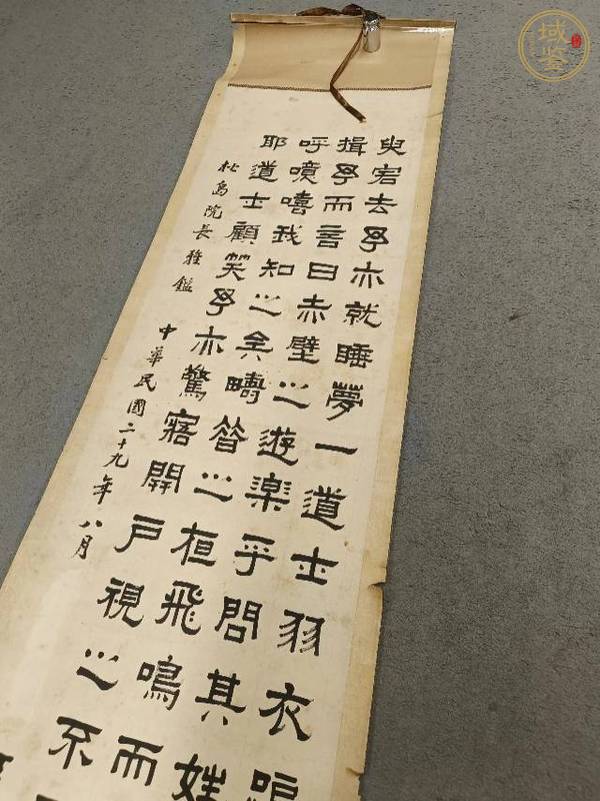 臾客去予亦就睡夢一道士羽衣
揖予而言曰赤壁之遊樂乎問其姓
呼噫嘻我知之矣疇昔之夜飛鳴而
耶道士顧笑予亦驚寤開戶視之不
松島院長雅鑑 中華民國二十九年八月
域鉴